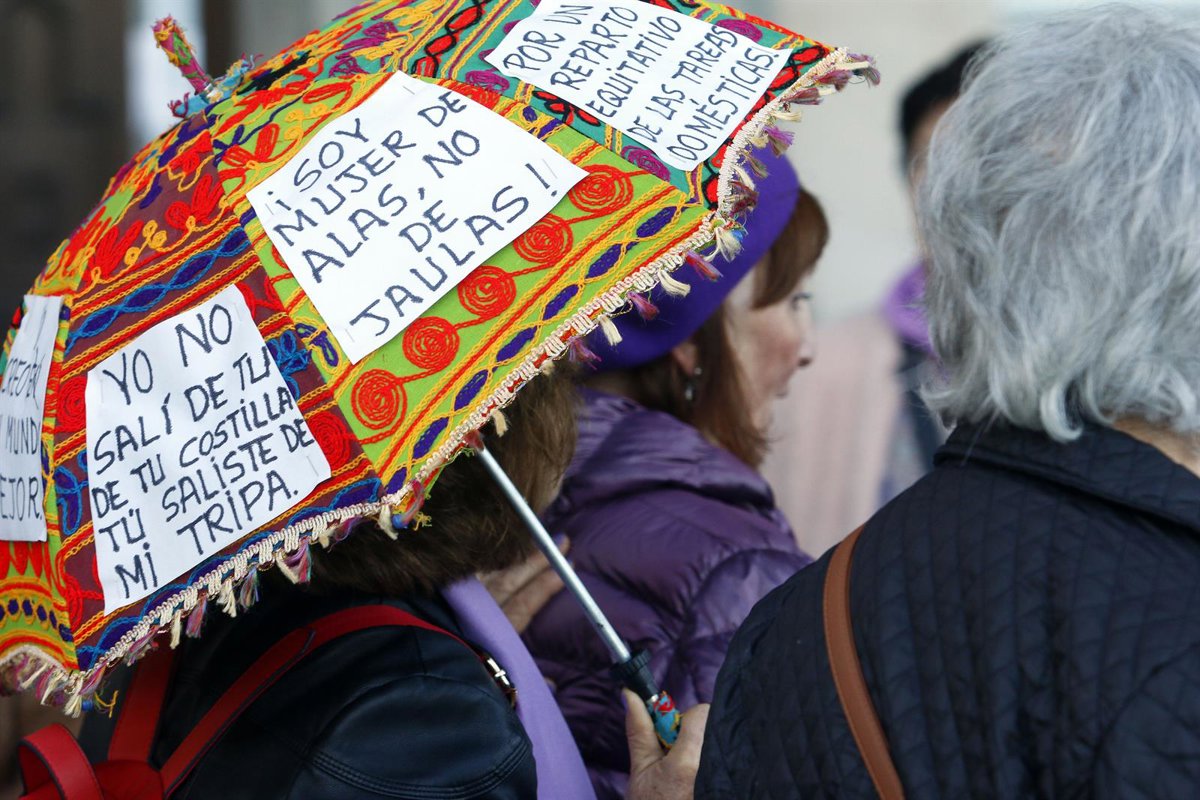 ¡POR UN
REPARTO
EQUITATIVO
DE LAS TAREAS
DOMÉSTICAS!
¡¡SOY
MUJER DE
ALAS, NO
DE
JAULAS!
YO NO
SALÍ DE TU
DE TU COSTILLA
TÚ SALISTE DE
MI TRIPA.
MUND
EJOR